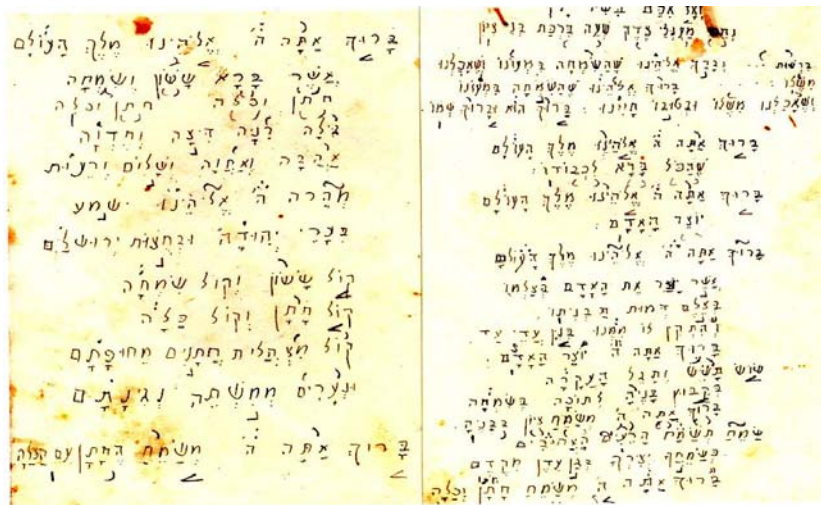 מַעְגְּלֵי צֶדֶק שְׁעֵה בִּרְכַּת בְּנֵי צִיּוֹן
בִּרְשׁוּת נְבָרֵךְ אֱלֹהֵינוּ שֶׁהַשִּׂמְחָה בִּמְעוֹנוֹ וְשֶׁאָכַלְנוּ
מִשֶּׁלּוֹ : בָּרוּךְ אֱלֹהֵינוּ שֶׁהַשִּׂמְחָה בִּמְעוֹנוֹ
וְשֶׁאָכַלְנוּ מִשֶּׁלּוֹ וּבְטוּבוֹ חָיִינוּ : בָּרוּךְ הוּא וּבָרוּךְ שְׁמוֹ
בָּרוּךְ אַתָּה ה' אֱלֹהֵינוּ מֶלֶךְ הָעוֹלָם
שֶׁהַכֹּל בָּרָא לִכְבוֹדוֹ :
בָּרוּךְ אַתָּה ה' אֱלֹהֵינוּ מֶלֶךְ הָעוֹלָם
יוֹצֵר הָאָדָם :
בָּרוּךְ אַתָּה ה' אֱלֹהֵינוּ מֶלֶךְ הָעוֹלָם
אֲשֶׁר יָצַר אֶת הָאָדָם בְּצַלְמוֹ
בְּצֶלֶם דְּמוּת תַּבְנִיתוֹ
וְהִתְקִין לוֹ מִמֶּנּוּ בִּנְיַן עֲדֵי עַד
בָּרוּךְ אַתָּה ה' יוֹצֵר הָאָדָם
שׂוֹשׂ תָּשִׂישׂ וְתָגֵל הָעֲקָרָה
בְּקִבּוּץ בָּנֶיהָ לְתוֹכָהּ בְּשִׂמְחָה
בָּרוּךְ אַתָּה ה' מְשַׂמֵּחַ צִיּוֹן בְּבָנֶיהָ
שַׂמֵּחַ תְּשַׂמַּח הָאֲהוּבִים
כְּשַׂמֵּחֲךָ יְצִירְךָ בְּגַן עֵדֶן מִקֶּדֶם
בָּרוּךְ אַתָּה ה' מְשַׂמֵּחַ חָתָן וְכַלָּה
בָּרוּךְ אַתָּה ה' אֱלֹהֵינוּ מֶלֶךְ הָעוֹלָם
אֲשֶׁר בָּרָא שָׂשׂוֹן וְשִׂמְחָה
חָתָן וְכַלָּה חתן וכלה
גִּילָה רִנָּה דִּיצָה וְחֶדְוָה
אַהֲבָה וְאַחֲוָה וְשָׁלוֹם וְרֵעוּת
מְהֵרָה ה' אֱלֹהֵינוּ ישמע
בְּעָרֵי יְהוּדָה וּבְחֻצוֹת יְרוּשָׁלַיִם
קוֹל שָׂשׂוֹן וְקוֹל שִׂמְחָה
קוֹל חָתָן וְקוֹל כַּלָּה
קוֹל מִצְהֲלוֹת חֲתָנִים מֵחוּפָּתָם
וּנְעָרִים מִמִּשְׁתֵּה נְגִינָתָם
בָּרוּךְ אַתָּה ה' מְשַׂמֵּחַ הֶחָתָן עִם הַכַּלָּה